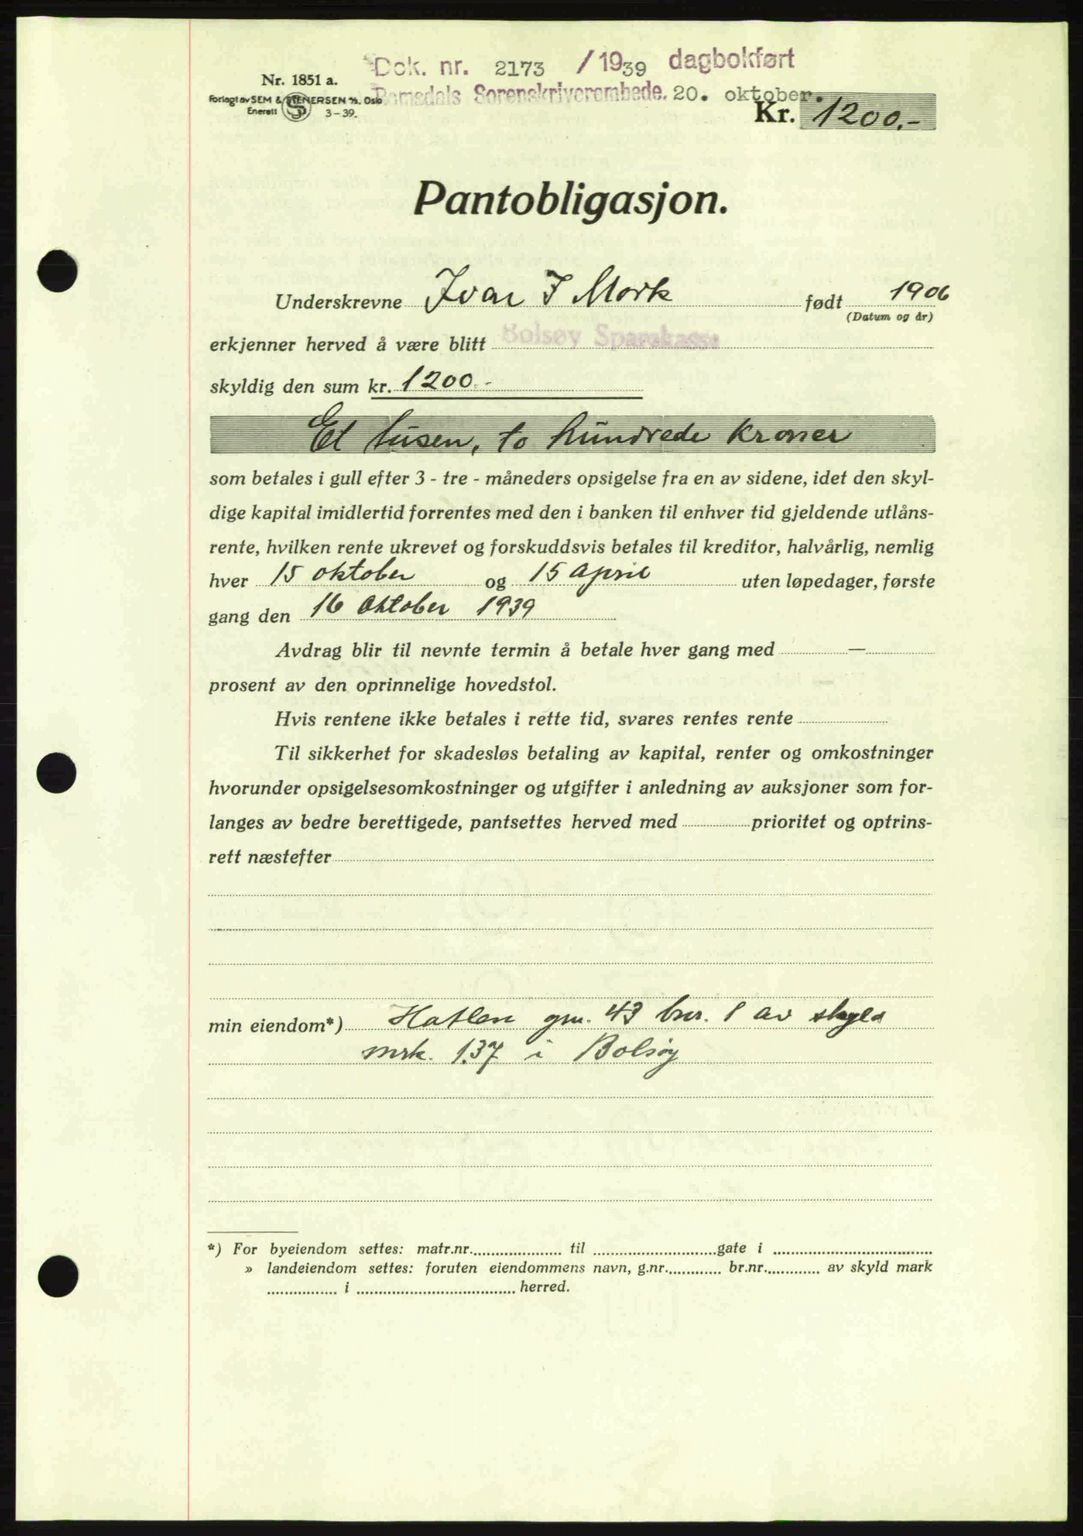 Dok. nr. 2173 /1939 dagbokført
Nr. 1851 a.
Romsdals Sorenskriverembede. 20. oktober.
Forlagt av SEM & STENERSEN A/S. Oslo
Enerett 3-39.
Kr. 1200.-
Pantobligasjon.
Underskrevne Ivar I Mork født 1906
(Datum og år)
erkjenner herved å være blitt Bolsøy Sparekasse
skyldig den sum kr. 1200.-
Et tusen, to hundrede kroner
som betales i gull efter 3 - tre - måneders opsigelse fra en av sidene, idet den skyl-
dige kapital imidlertid forrentes med den i banken til enhver tid gjeldende utlåns-
rente, hvilken rente ukrevet og forskuddsvis betales til kreditor, halvårlig, nemlig
hver 15 oktober og 15 april uten løpedager, første
gang den 16 oktober 1939
Avdrag blir til nevnte termin å betale hver gang med —
prosent av den oprinnelige hovedstol.
Hvis rentene ikke betales i rette tid, svares rentes rente
Til sikkerhet for skadesløs betaling av kapital, renter og omkostninger
hvorunder opsigelsesomkostninger og utgifter i anledning av auksjoner som for-
langes av bedre berettigede, pantsettes herved med prioritet og optrins-
rett næstefter
min eiendom*) Hatlen gnr. 43 bnr. 1 av skyld
mrk. 1.37 i Bolsøy
*) For byeiendom settes: matr.nr. til gate i
» landeiendom settes: foruten eiendommens navn, g.nr. br.nr. av skyld mark
i herred.